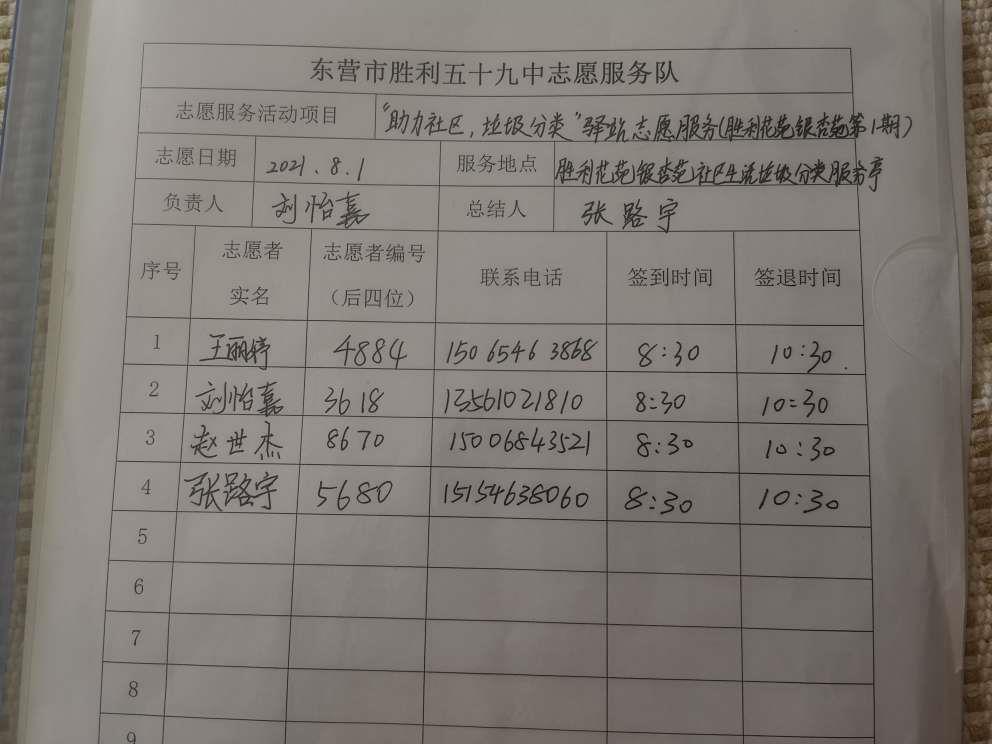 东营市胜利五十九中志愿服务队
志愿服务活动项目 “助力社区，垃圾分类”驿站志愿服务(胜利花苑银杏苑第1期)
志愿日期 2021.8.1 服务地点 胜利花苑银杏苑社区生活垃圾分类服务亭
负责人 刘怡嘉 总结人 张路宇
序号 志愿者实名 志愿者编号（后四位） 联系电话 签到时间 签退时间
1 王丽婷 4884 15065463868 8:30 10:30
2 刘怡嘉 3618 13561021810 8:30 10:30
3 赵世杰 8670 15006843521 8:30 10:30
4 张路宇 5680 15154638060 8:30 10:30
5
6
7
8
9